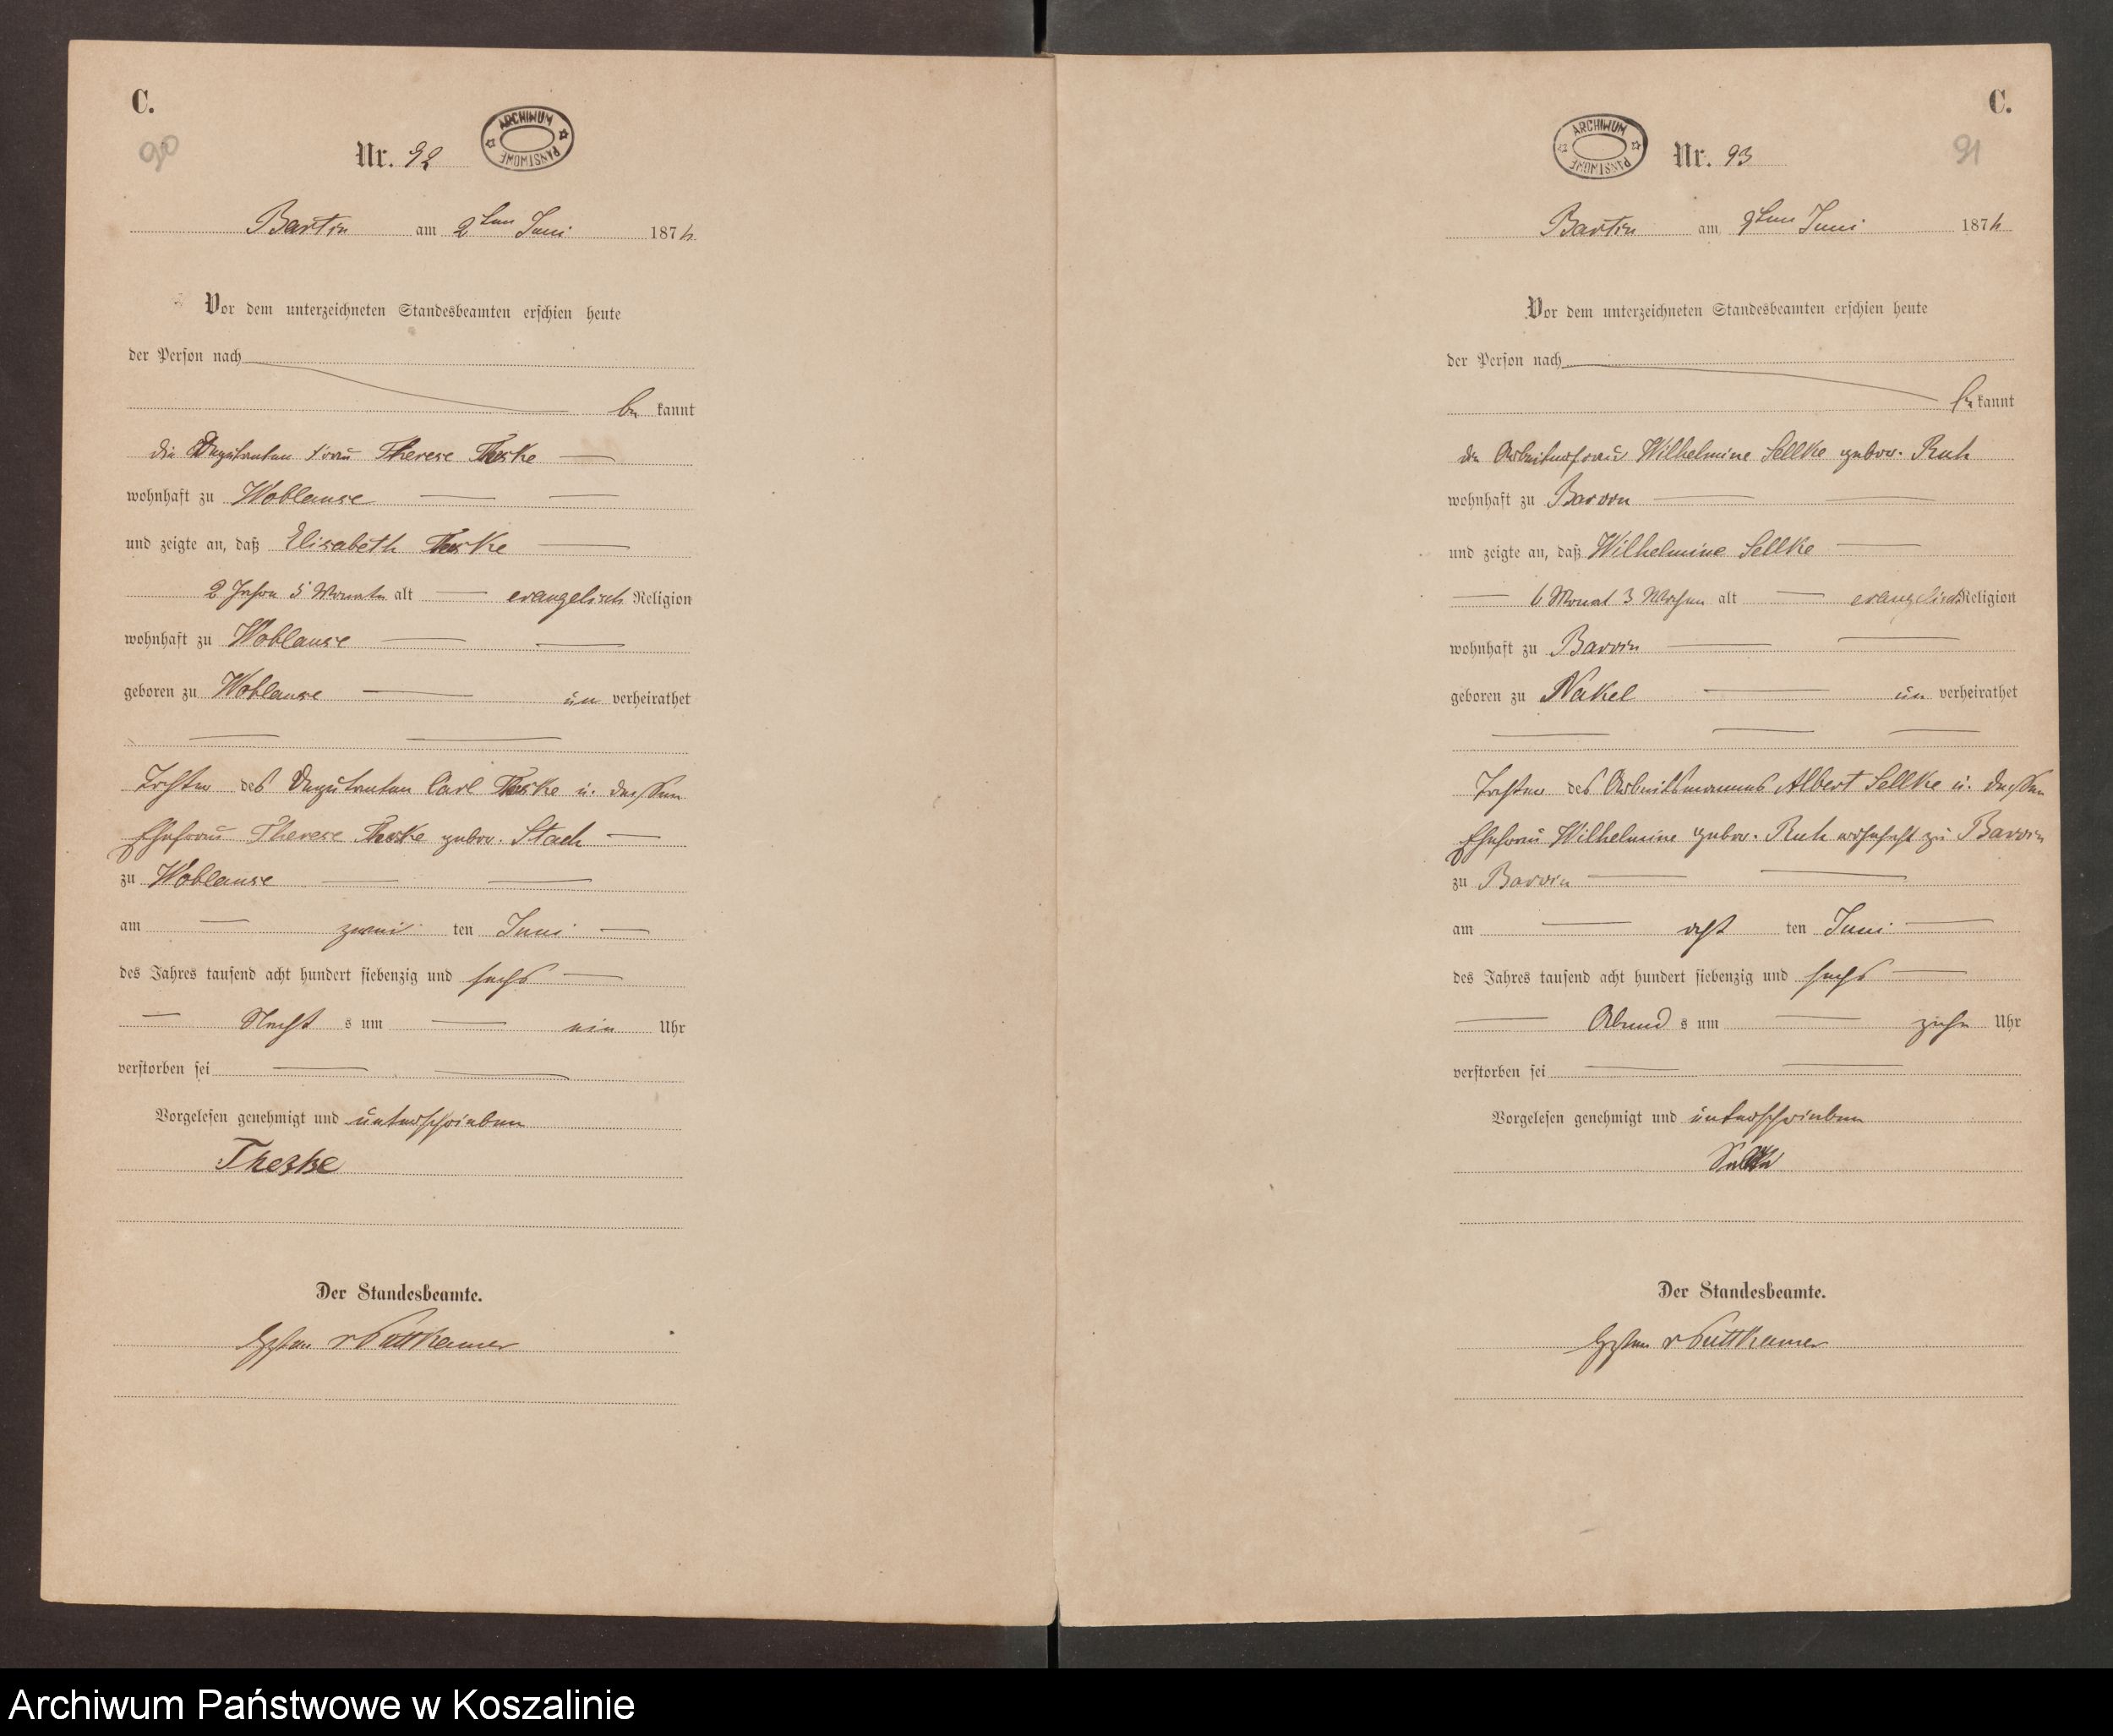 C.
90
Nr. 92
ARCHIWUM PAŃSTWOWE
Bartin am 2ten Juni 1876
Vor dem unterzeichneten Standesbeamten erschien heute
der Person nach
be kannt
die Deputanten Frau Therese Theske
wohnhaft zu Woblanse
und zeigte an, daß Elisabeth Theske
2 Jahre 5 Monate alt evangelisch Religion
wohnhaft zu Woblanse
geboren zu Woblanse un verheirathet
Tochter des Deputanten Carl Theske u. dessen
Ehefrau Therese Theske gebor. Stach
zu Woblanse
am zwei ten Juni
des Jahres tausend acht hundert siebenzig und sechs
Nacht s um ein Uhr
verstorben sei
Vorgelesen genehmigt und unterschrieben
Theske
Der Standesbeamte.
v Puttkamer
C.
91
ARCHIWUM PAŃSTWOWE
Nr. 93
Bartin am 9ten Juni 1876
Vor dem unterzeichneten Standesbeamten erschien heute
der Person nach
be kannt
die Arbeiterfrau Wilhelmine Sellke gebor. Ruh
wohnhaft zu Barvin
und zeigte an, daß Wilhelmine Sellke
6 Monat 3 Wochen alt evangelisch Religion
wohnhaft zu Barvin
geboren zu Nakel un verheirathet
Tochter des Arbeitsmannes Albert Sellke u. dessen
Ehefrau Wilhelmine gebor. Ruh wohnhaft zu Barvin
zu Barvin
am acht ten Juni
des Jahres tausend acht hundert siebenzig und sechs
Abend s um zehn Uhr
verstorben sei
Vorgelesen genehmigt und unterschrieben
Der Standesbeamte.
v Puttkamer
Archiwum Państwowe w Koszalinie